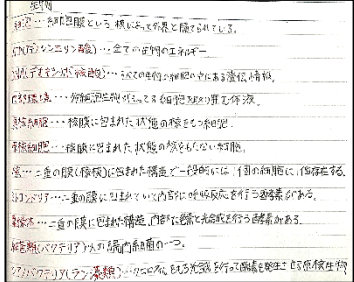 生物
細胞…細胞膜という 膜によって外界と隔てられている。
ATP(アデノシン三リン酸)…全ての生物のエネルギー
DNA(デオキシリボ核酸)…すべての生物の細胞の中にある遺伝情報。
体内環境…多細胞生物 細胞を取り囲む体液。
真核細胞…核膜に包まれた状態の核をもつ細胞。
原核細胞…核膜に包まれた状態の核をもたない細胞。
核…二重の膜(核膜)に包まれた構造で一般的には1個の細胞に1個存在する。
ミトコンドリア…二重の膜に包まれていて内部に呼吸反応を行う酵素がある。
葉緑体…二重の膜に包まれた構造、内部に 光合成を行う酵素がある。
(バクテリア) 人の腸内細菌の一つ。
シアノバクテリア(ラン藻類)…クロロフィルをもち光合成を行って酸素を発生させる原核生物